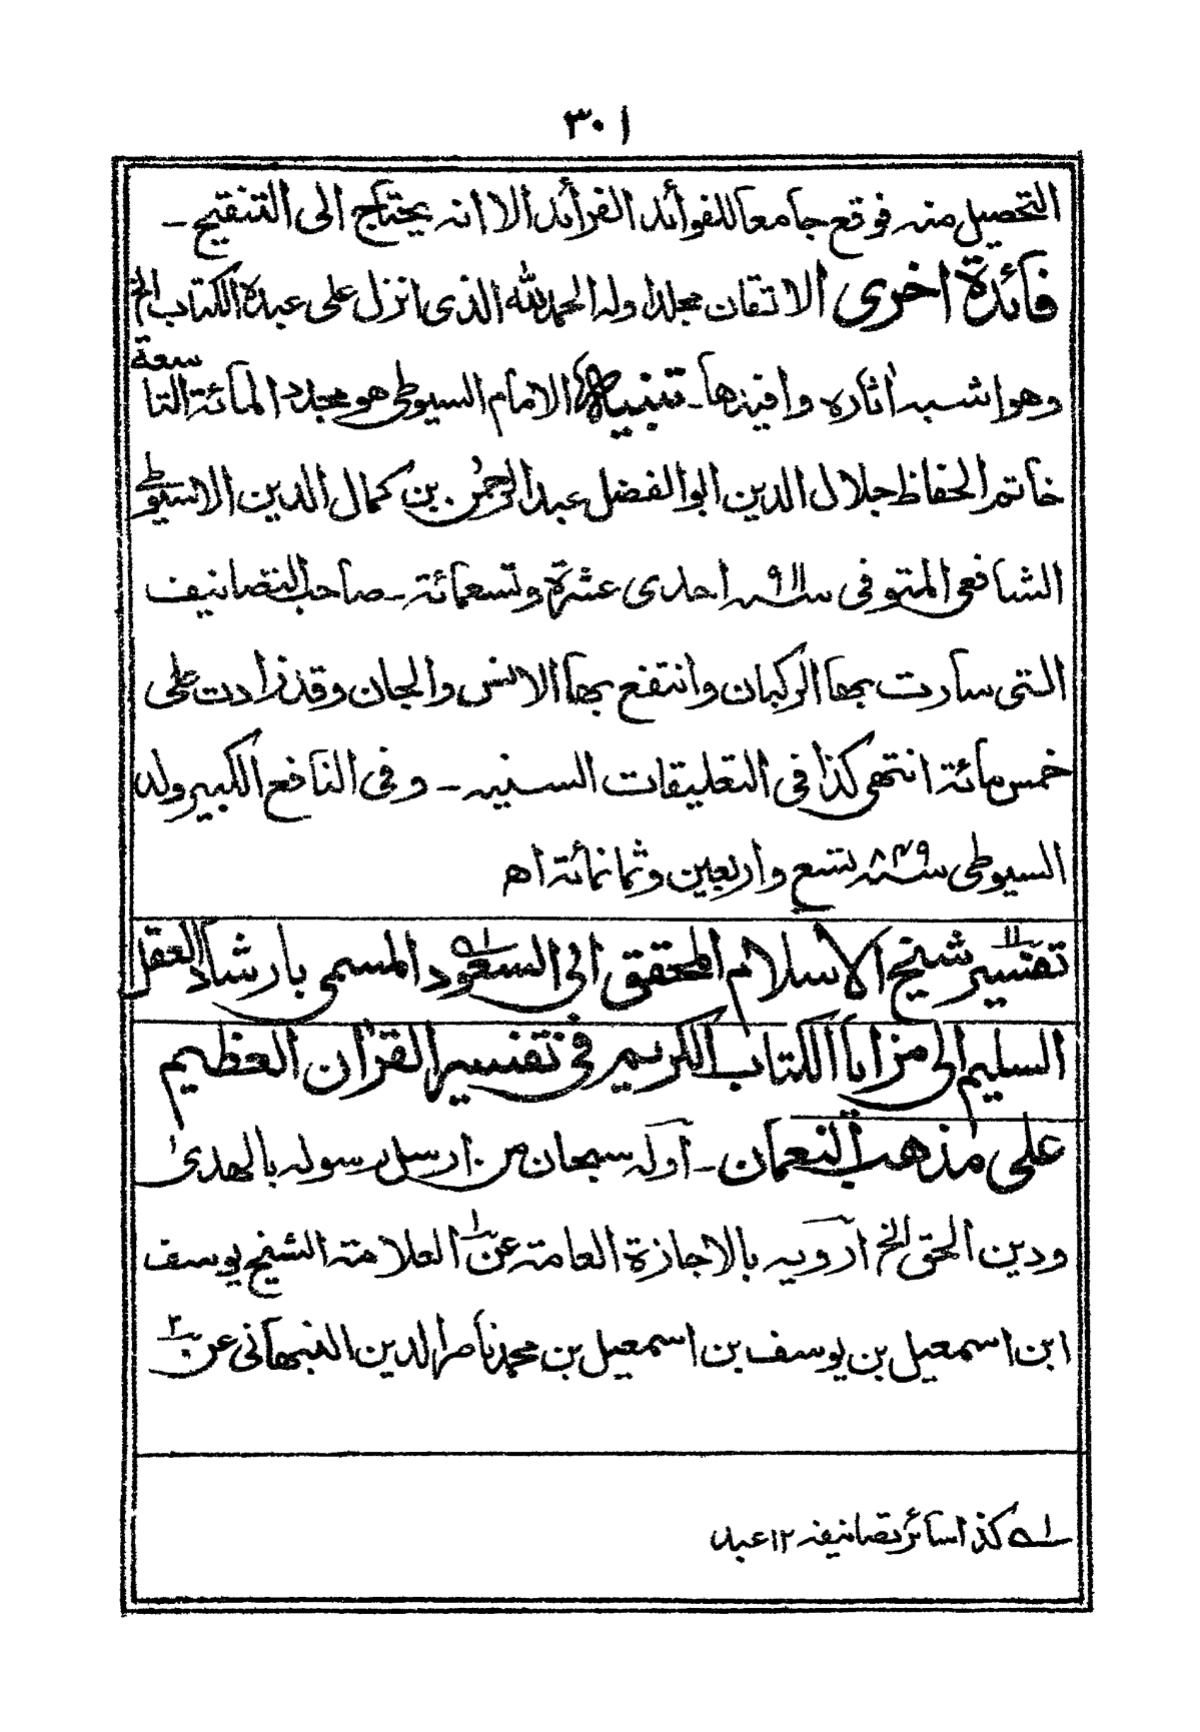 ٣٠١
التحصيل منه فوقع جامعا للفوائد الفرائد الا انه يحتاج الى التنقيح -
فائدة اخرى الاتقان مجلد اوله الحمد لله الذى انزل على عبده الكتاب الخ
وهو اشبه اثاره وافيدها - تنبيه الامام السيوطى هو مجدد المائة التاسعة
خاتم الحفاظ جلال الدين ابو الفضل عبد الرحمن بن كمال الدين الاسيوطى
الشافعى المتوفى سنه ٩١١ احدى عشرة وتسعمائة - صاحب التصانيف
التى سارت بها الركبان وانتفع بها الانس والجان وقد زادت على
خمس مائة انتهى كذا فى التعليقات السنيه - وفى النافع الكبير ولد
السيوطى سنه ٨٤٩ تسع واربعين وثمانمائة اه
تفسير ١١ شيخ الاسلام المحقق ابى السعود ١ المسمى بارشاد العقل
السليم الى مزايا الكتاب الكريم فى تفسير القرآن العظيم
على مذهب النعمان - اوله سبحان من ارسل رسوله بالهدى
ودين الحق الخ ارويه بالاجازة العامة عن ١ العلامة الشيخ يوسف
ابن اسمعيل بن يوسف بن اسمعيل بن محمد ناصر الدين النبهانى عن ٢
١ كذا سائر تصانيفه ١٢ عبد